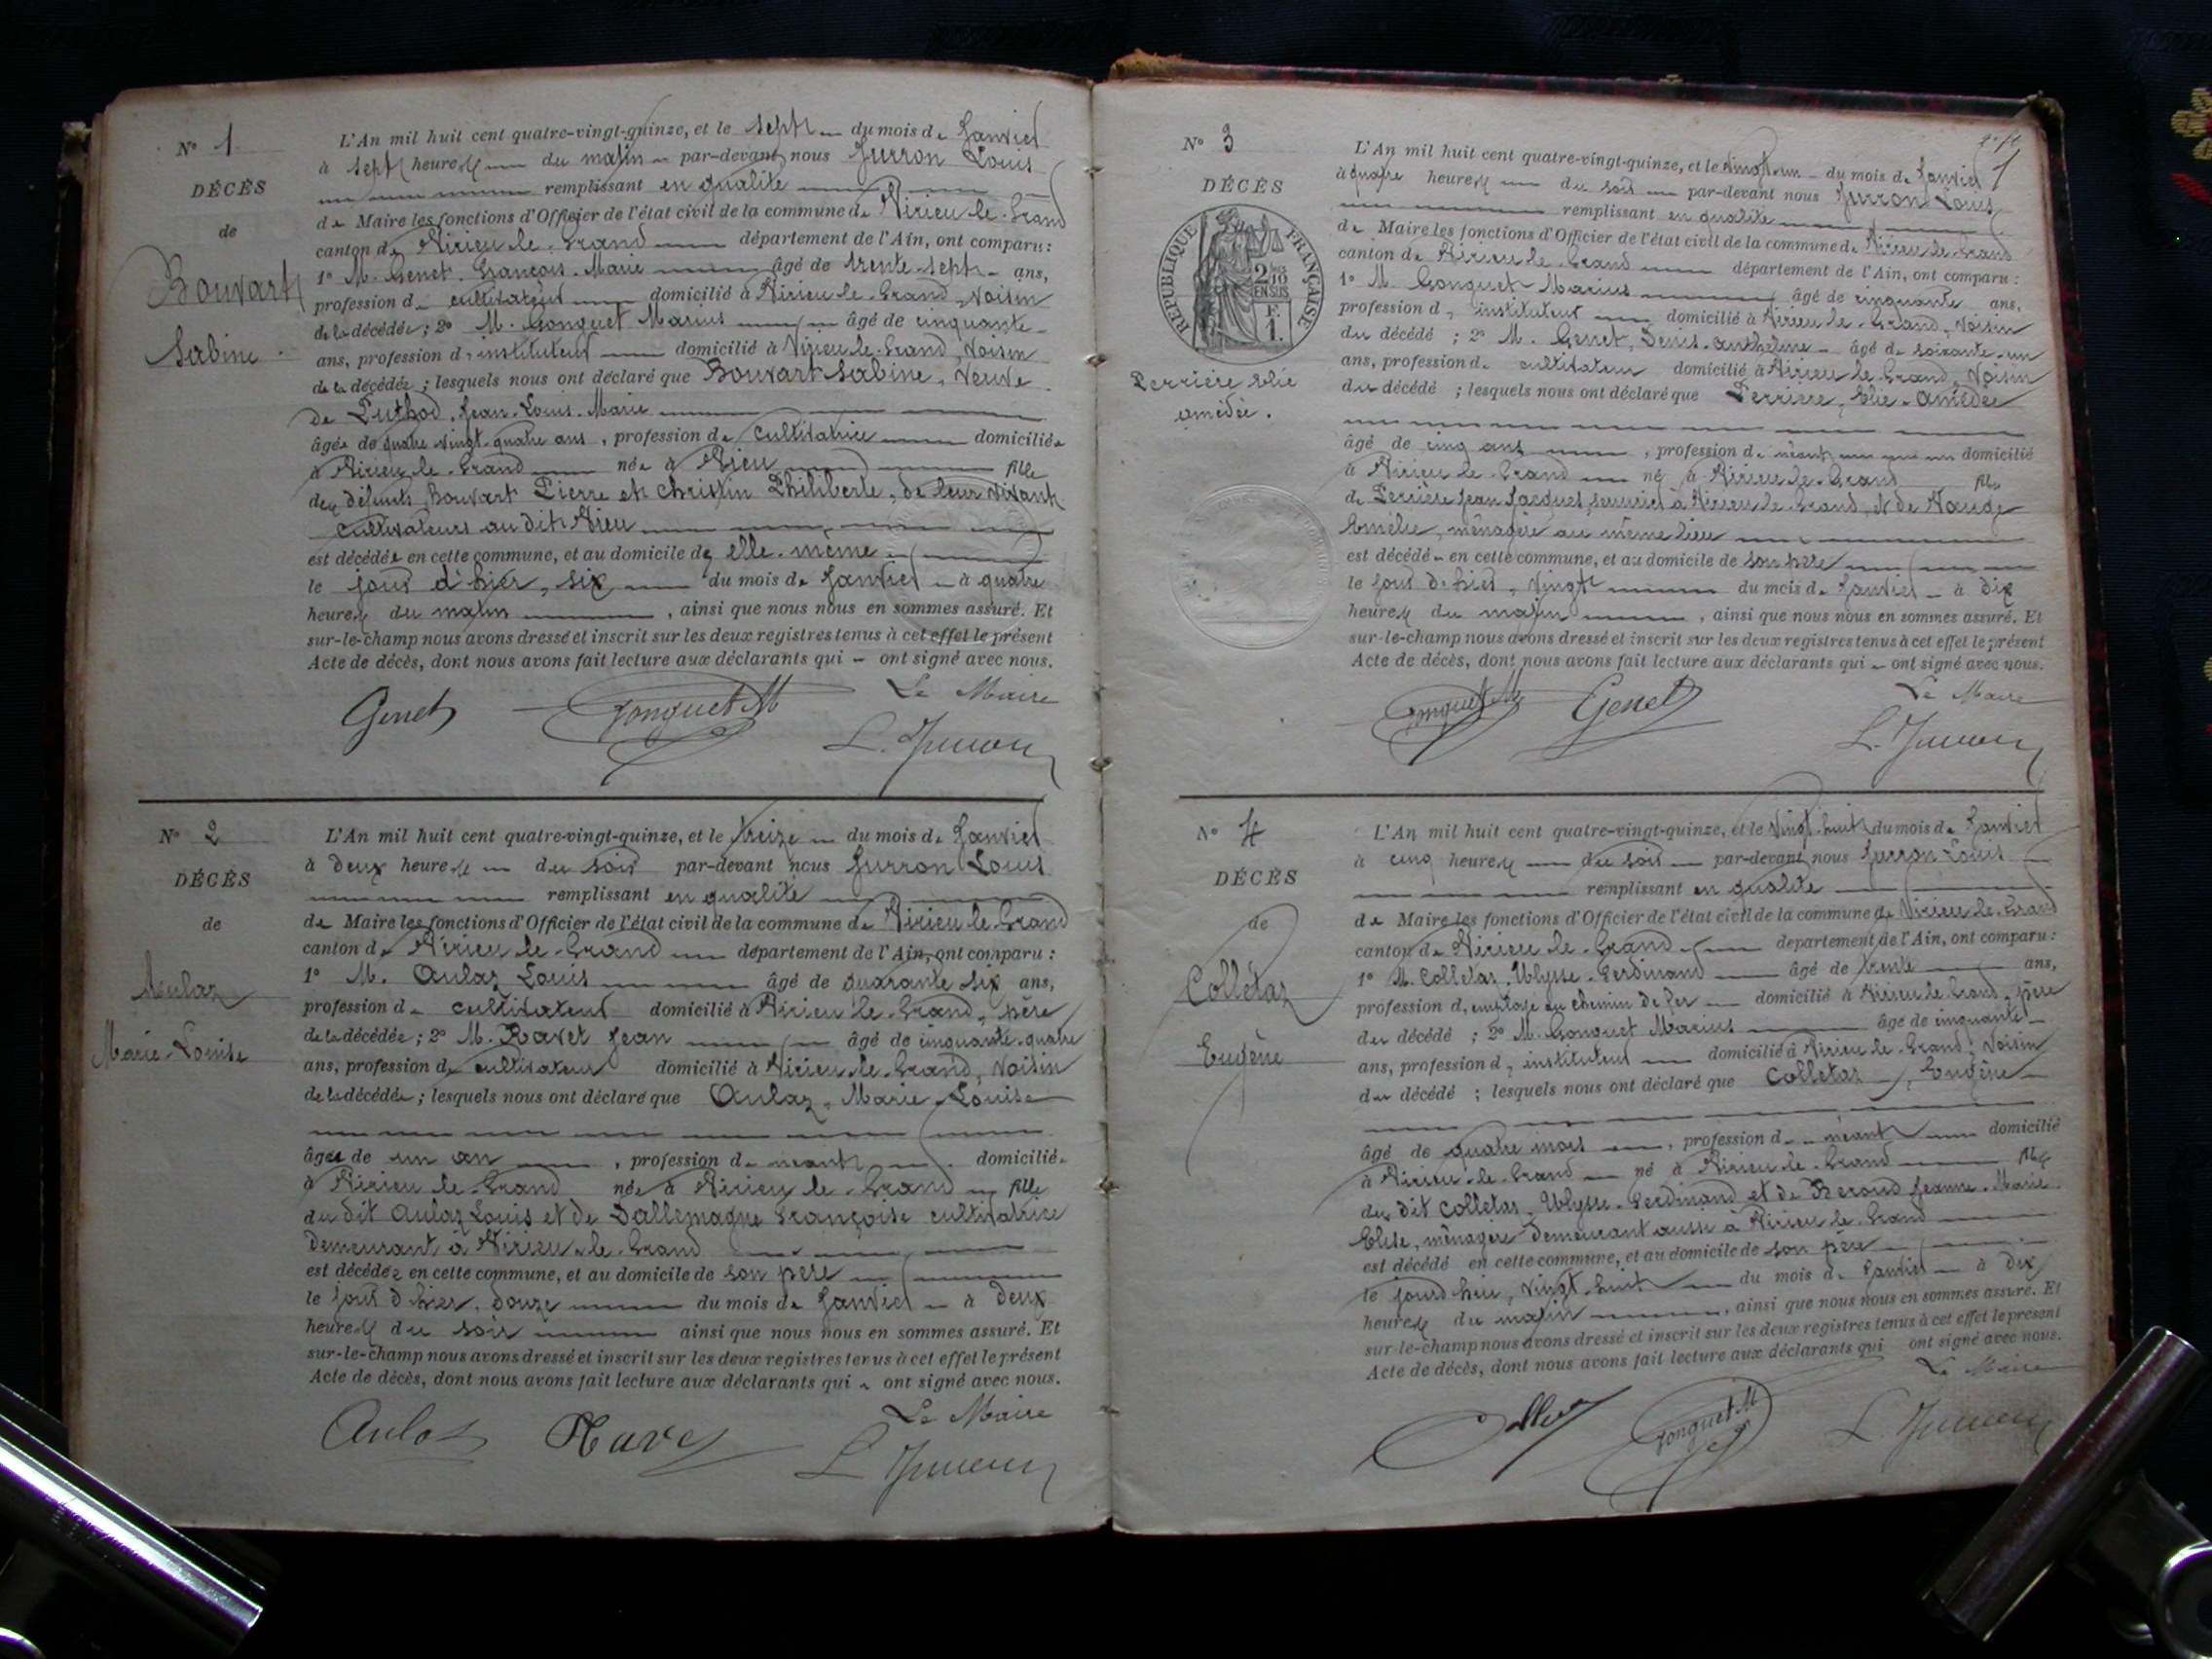 N° 1
DÉCÈS
de
Bouvart
Sabine
L'An mil huit cent quatre-vingt-quinze, et le sept du mois de Janvier
à sept heures du matin par-devant nous Jurron Louis
remplissant en qualité
de Maire les fonctions d'Officier de l'état civil de la commune de Virieu-le-Grand
canton de Virieu-le-Grand département de l'Ain, ont comparu :
1° M. Genet François-Marie âgé de trente-sept ans,
profession de cultivateur domicilié à Virieu-le-Grand, voisin
de la décédée ; 2° M. Gonguet Marius âgé de cinquante
ans, profession d'instituteur domicilié à Virieu-le-Grand, voisin
de la décédée ; lesquels nous ont déclaré que Bouvart Sabine, veuve
de Puthod, Jean-Louis-Marie
âgée de quatre-vingt-quatre ans, profession de cultivatrice domiciliée
à Virieu-le-Grand née à Vieu fille
des défunts Bouvart Pierre et Christin Philiberte, de leur vivant
cultivateurs au dit Vieu
est décédée en cette commune, et au domicile de elle-même
le jour d'hier, six du mois de Janvier à quatre
heures du matin, ainsi que nous nous en sommes assuré. Et
sur-le-champ nous avons dressé et inscrit sur les deux registres tenus à cet effet le présent
Acte de décès, dont nous avons fait lecture aux déclarants qui ont signé avec nous.
Le Maire
Genet Gonguet M L. Jurron
N° 2
DÉCÈS
de
Aulaz
Marie-Louise
L'An mil huit cent quatre-vingt-quinze, et le treize du mois de Janvier
à deux heures du soir par-devant nous Jurron Louis
remplissant en qualité
de Maire les fonctions d'Officier de l'état civil de la commune de Virieu-le-Grand
canton de Virieu-le-Grand département de l'Ain, ont comparu :
1° M. Aulaz Louis âgé de quarante-six ans,
profession de cultivateur domicilié à Virieu-le-Grand, père
de la décédée ; 2° M. Ravet Jean âgé de cinquante-quatre
ans, profession de cultivateur domicilié à Virieu-le-Grand, voisin
de la décédée ; lesquels nous ont déclaré que Aulaz, Marie-Louise
âgée de un an, profession de néant domiciliée
à Virieu-le-Grand née à Virieu-le-Grand fille
du dit Aulaz Louis et de Dallemagne Françoise cultivatrice
demeurant à Virieu-le-Grand
est décédée en cette commune, et au domicile de son père
le jour d'hier, douze du mois de Janvier à deux
heures du soir ainsi que nous nous en sommes assuré. Et
sur-le-champ nous avons dressé et inscrit sur les deux registres tenus à cet effet le présent
Acte de décès, dont nous avons fait lecture aux déclarants qui ont signé avec nous.
Le Maire
Aulaz Ravet L. Jurron
1
N° 3
DÉCÈS
RÉPUBLIQUE FRANÇAISE
2/10 EN SUS
F. 1.
Perrière Élie
Amédée.
L'An mil huit cent quatre-vingt-quinze, et le vingt-un du mois de Janvier
à quatre heures du soir par-devant nous Jurron Louis
remplissant en qualité
de Maire les fonctions d'Officier de l'état civil de la commune de Virieu-le-Grand
canton de Virieu-le-Grand département de l'Ain, ont comparu :
1° M. Gonguet Marius âgé de cinquante ans,
profession d'instituteur domicilié à Virieu-le-Grand, voisin
du décédé ; 2° M. Genet, Denis-Anthelme âgé de soixante-un
ans, profession de cultivateur domicilié à Virieu-le-Grand, voisin
du décédé ; lesquels nous ont déclaré que Perrière, Élie-Amédée
âgé de cinq ans, profession de néant domicilié
à Virieu-le-Grand né à Virieu-le-Grand fils
de Perrière Jean Jacques, à Virieu-le-Grand, et de
Émélie, ménagère au même lieu
est décédé en cette commune, et au domicile de son père
le jour d'hier, vingt du mois de Janvier à dix
heures du matin, ainsi que nous nous en sommes assuré. Et
sur-le-champ nous avons dressé et inscrit sur les deux registres tenus à cet effet le présent
Acte de décès, dont nous avons fait lecture aux déclarants qui ont signé avec nous.
Le Maire
Gonguet M Genet L. Jurron
N° 4
DÉCÈS
de
Collétaz
Eugène
L'An mil huit cent quatre-vingt-quinze, et le vingt-huit du mois de Janvier
à cinq heures du soir par-devant nous Jurron Louis
remplissant en qualité
de Maire les fonctions d'Officier de l'état civil de la commune de Virieu-le-Grand
canton de Virieu-le-Grand département de l'Ain, ont comparu :
1° M. Colletaz, Ulysse-Ferdinand âgé de trente ans,
profession d'employé au chemin de fer domicilié à Virieu-le-Grand, père
du décédé ; 2° M. Gonguet Marius âgé de cinquante
ans, profession d'instituteur domicilié à Virieu-le-Grand, voisin
du décédé ; lesquels nous ont déclaré que Colletaz, Eugène
âgé de quatre mois, profession de néant domicilié
à Virieu-le-Grand né à Virieu-le-Grand fils
du dit Colletaz, Ulysse-Ferdinand et de Berond Jeanne-Marie
Élise, ménagère demeurant aussi à Virieu-le-Grand
est décédé en cette commune, et au domicile de son père
le jourd'hui, vingt-huit du mois de Janvier à dix
heures du matin, ainsi que nous nous en sommes assuré. Et
sur-le-champ nous avons dressé et inscrit sur les deux registres tenus à cet effet le présent
Acte de décès, dont nous avons fait lecture aux déclarants qui ont signé avec nous.
Le Maire
Gonguet M L. Jurron